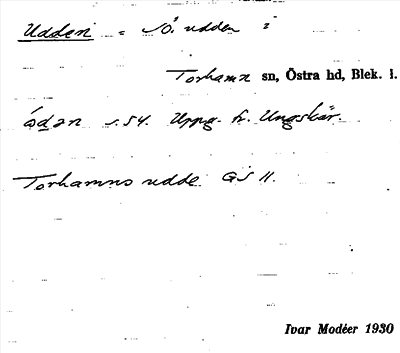 Udden = SÖ. udden i
Torhamn sn, Östra hd, Blek. l.
ód̲ən s. 54. Uppg. fr. Ungskär.
Torhamns udde GS 11.
Ivar Modéer 1930